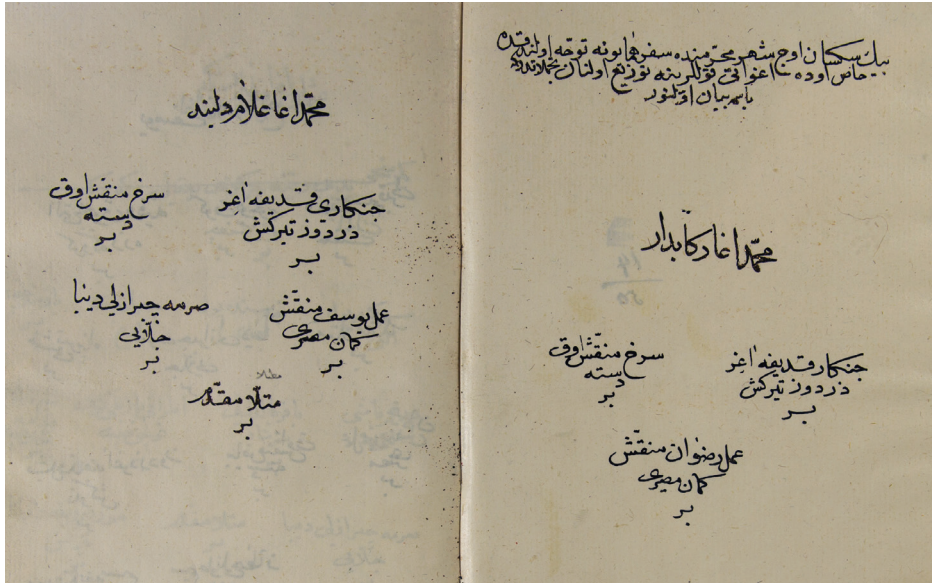 بيك سكسان اوچ شهر محرمنده سفر همايونه توجه اولندقده
خاص اوده اغواتى قوللرينه توزيع اولنان
باسه بيان اولنور
محمد اغا ركابدار
جنكار قديفه اغر
ذردوز تيركش
بر
سرخ منقش اوق
دسته
بر
عمل رضوان منقش
كمان مصرى
بر
محمد اغا غلام دلبند
جنكاري قديفه اغر
ذردوز تيركش
بر
سرخ منقش اوق
دسته
بر
عمل يوسف منقش
كمان مصرى
بر
صرمه چپرازلي ديبا
بر
بر